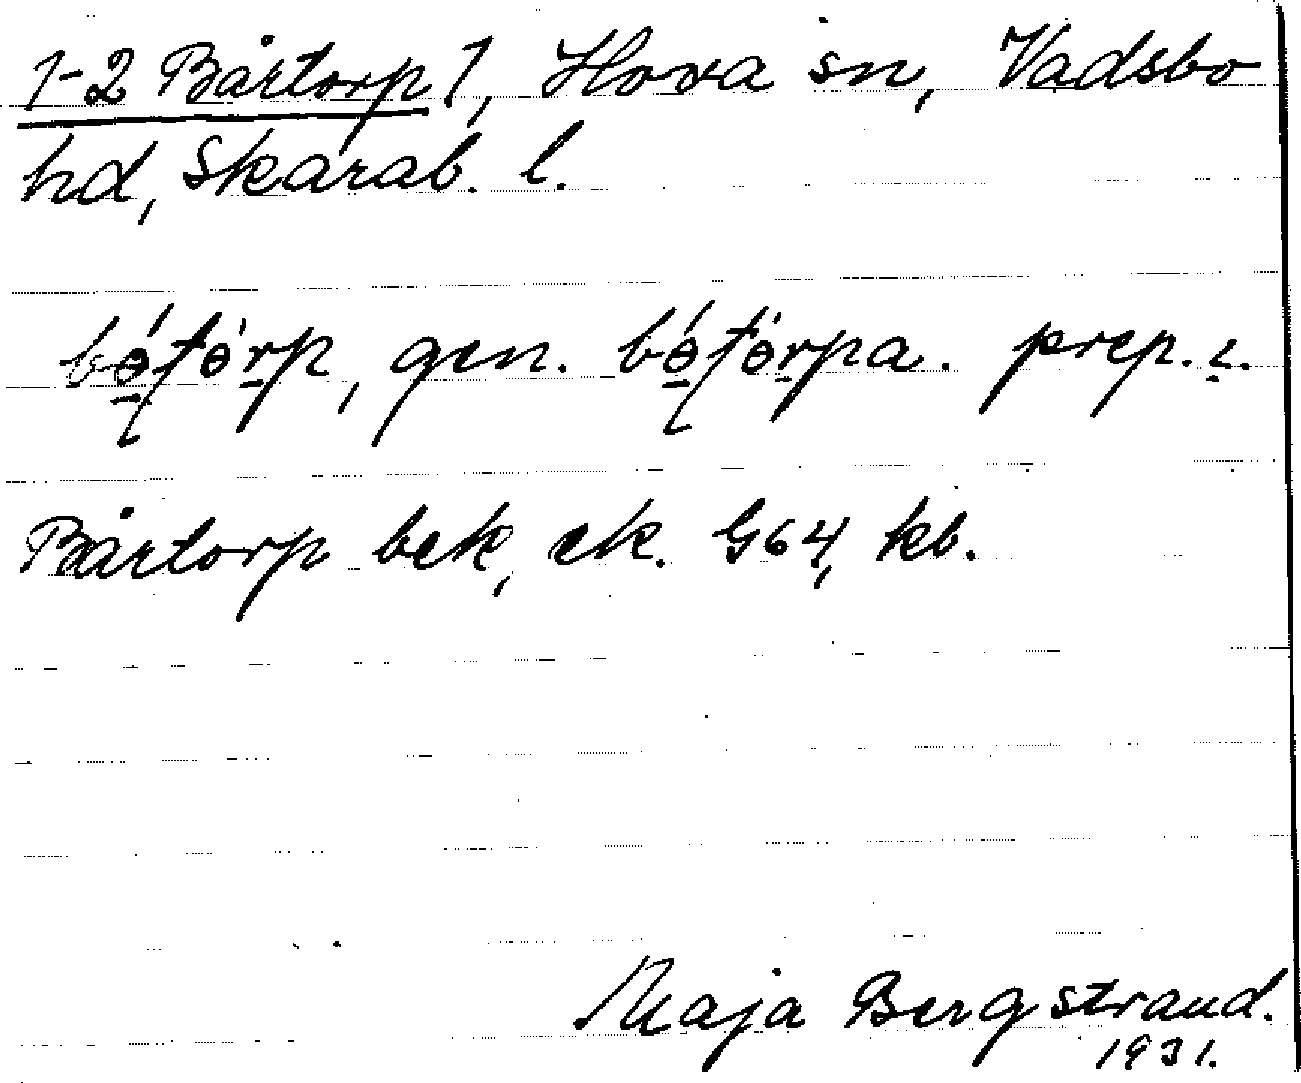 1-2 Bårtorp 1, Hova sn, Vadsbo
hd, Skarab. l.
gen. prep. ι.
Bårtorp bek, ek. G64, kb.
Maja Bergstrand.
1931.